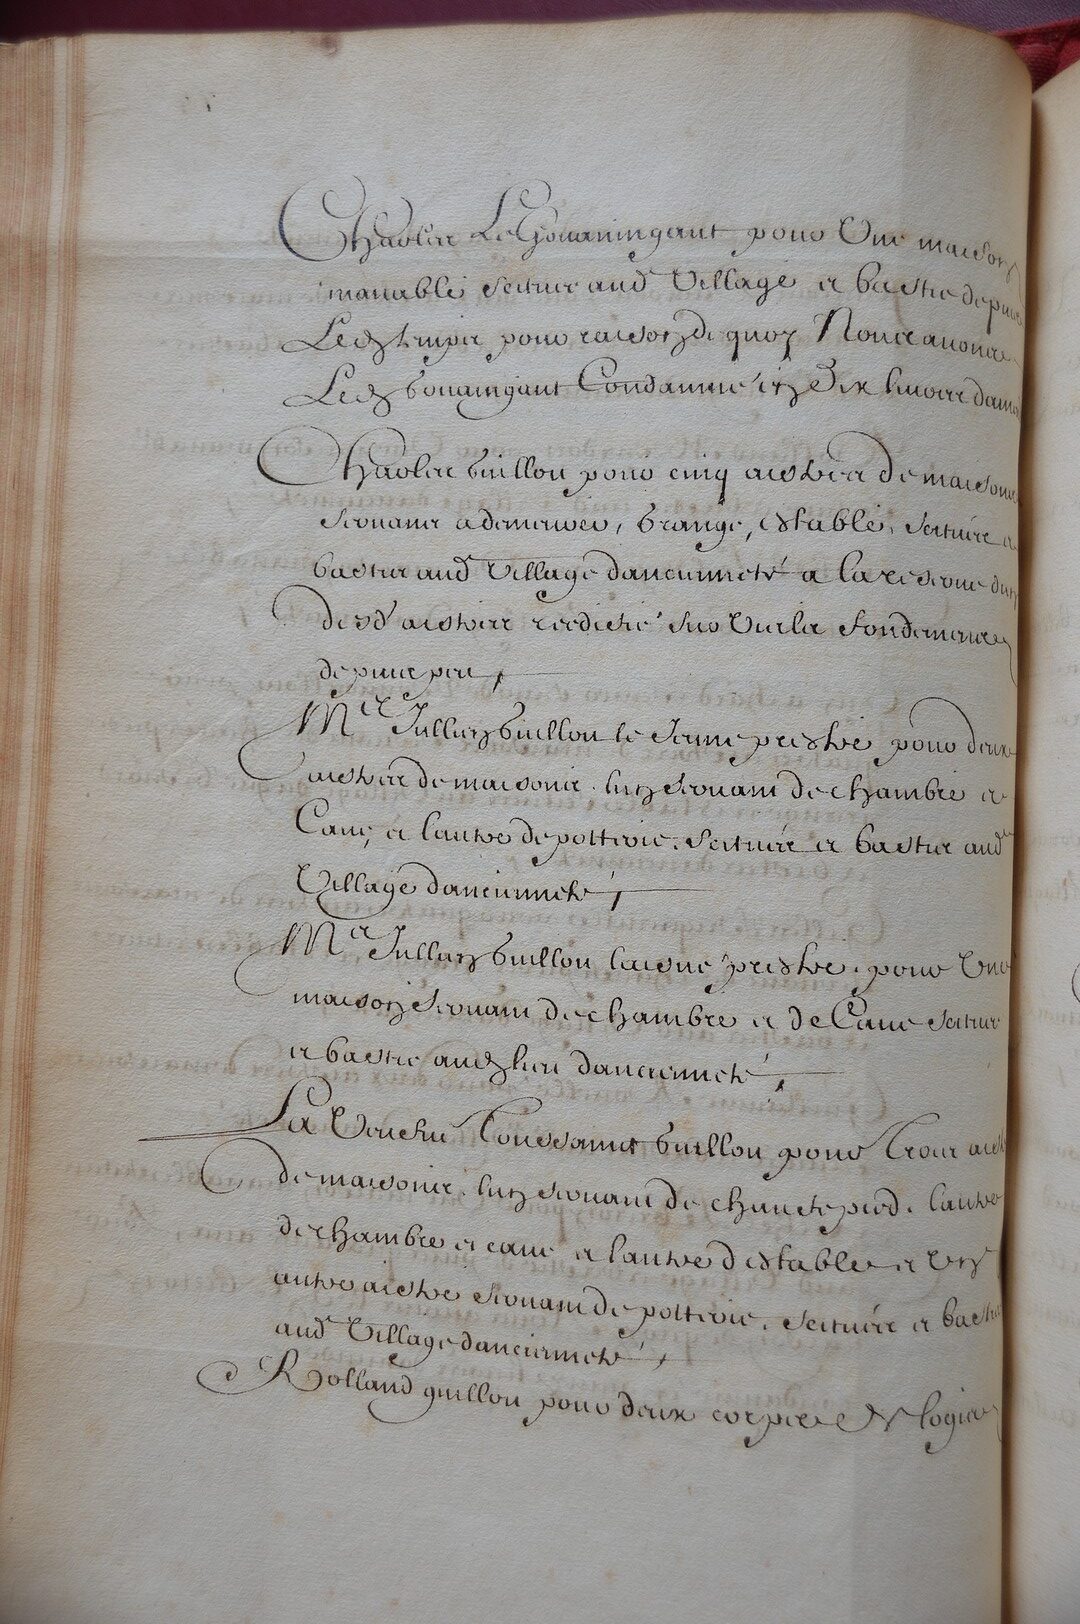 Charles Le Gouaningant pour Une maison
manable scituee aud Village et bastie depuis
Led temps pour raison de quoy Nous avons
Led Gouaingant Condamné en Dix livres dam
Charles Guillou pour cinq aistres de maisons
servans a demeurer, Grange, estable, scituées et
basties aud Village dancienneté a la reserve dun
desd aistres reedifié sur Vieils fondemens
depuis peu,
Mre Jullien Guillou le Jeune prestre pour deux
aistres de maisons lun servant de chambre et
Cave, et lautre de potterie, scituées et basties aud
Village dancienneté,
Mre Jullien Guillou laisné prestre, pour Une
maison servant de chambre et de Cave scituée
et bastie aud lieu dancienneté,
La Veufve Toussainct Guillou pour Trois aist
de maisons, lun servant de chauctepied, lautre
de chambre et cave et lautre destable et Un
autre aistre servant de potterie, scituées et basties
aud Village dancienneté,
Rolland guillou pour deux corps de logis